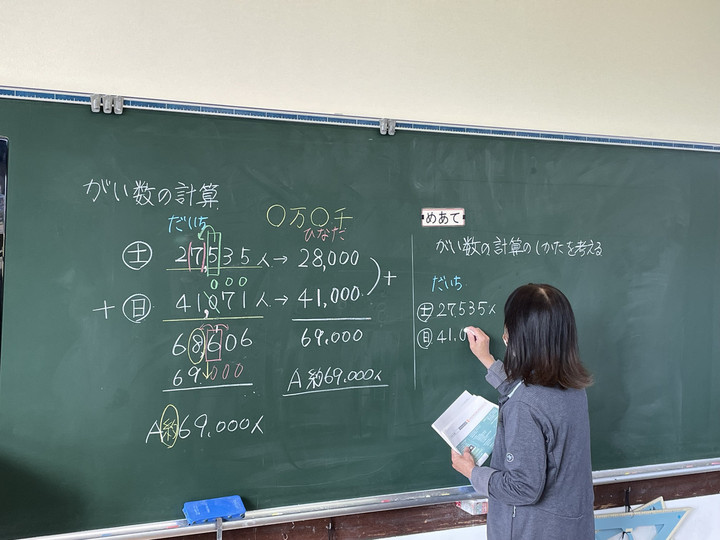 がい数の計算
だいち
〇万〇千
ひなた
土 27,535人→28,000
000
+日 41,071人→41,000
+
68606
69.000
69.000
A約69.000人
A約69.000人
めあて
がい数の計算のしかたを考える
だいち
土 27,535人
日 41,0